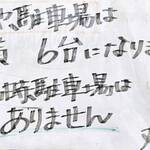 駐車場は
6台になりま
駐車場は
ありません